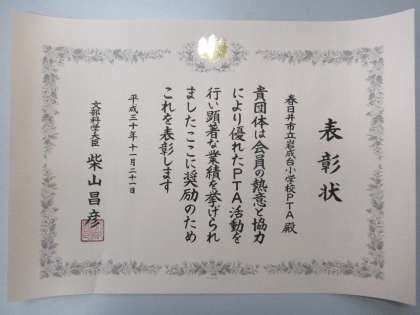 表彰状
春日井市立岩成台小学校PTA殿
貴団体は会員の熱意と協力
により優れたPTA活動を
行い顕著な業績を挙げられ
ましたここに奨励のため
これを表彰します
平成三十年十一月二十一日
文部科学大臣 柴山昌彦